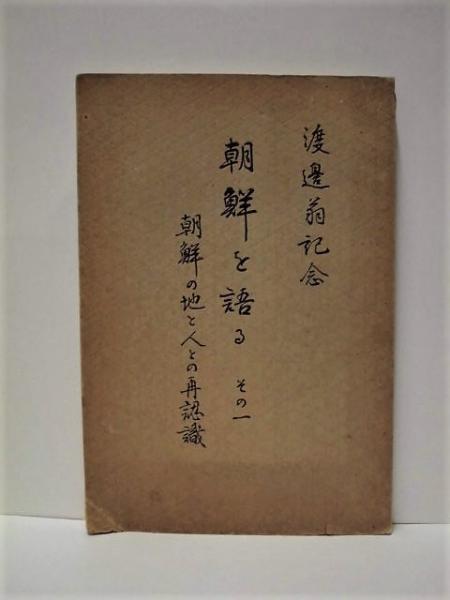 渡邊翁記念
朝鮮を語る その一
朝鮮の地と人との再認識